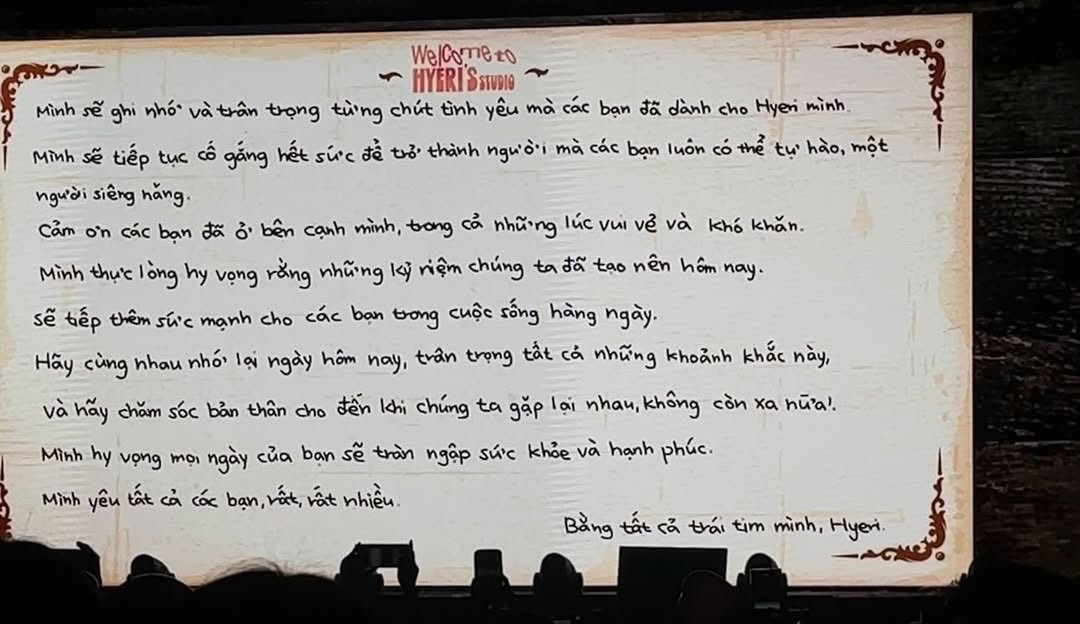 Welcome to
HYERI'S STUDIO
Mình sẽ ghi nhớ và trân trọng từng chút tình yêu mà các bạn đã dành cho Hyeri mình.
Mình sẽ tiếp tục cố gắng hết sức để trở thành người mà các bạn luôn có thể tự hào, một
người siêng năng.
Cảm ơn các bạn đã ở bên cạnh mình, trong cả những lúc vui vẻ và khó khăn.
Mình thực lòng hy vọng rằng những kỷ niệm chúng ta đã tạo nên hôm nay.
sẽ tiếp thêm sức mạnh cho các bạn trong cuộc sống hàng ngày.
Hãy cùng nhau nhớ lại ngày hôm nay, trân trọng tất cả những khoảnh khắc này,
và hãy chăm sóc bản thân cho đến khi chúng ta gặp lại nhau, không còn xa nữa!.
Mình hy vọng mọi ngày của bạn sẽ tràn ngập sức khỏe và hạnh phúc.
Mình yêu tất cả các bạn, rất, rất nhiều.
Bằng tất cả trái tim mình, Hyeri.